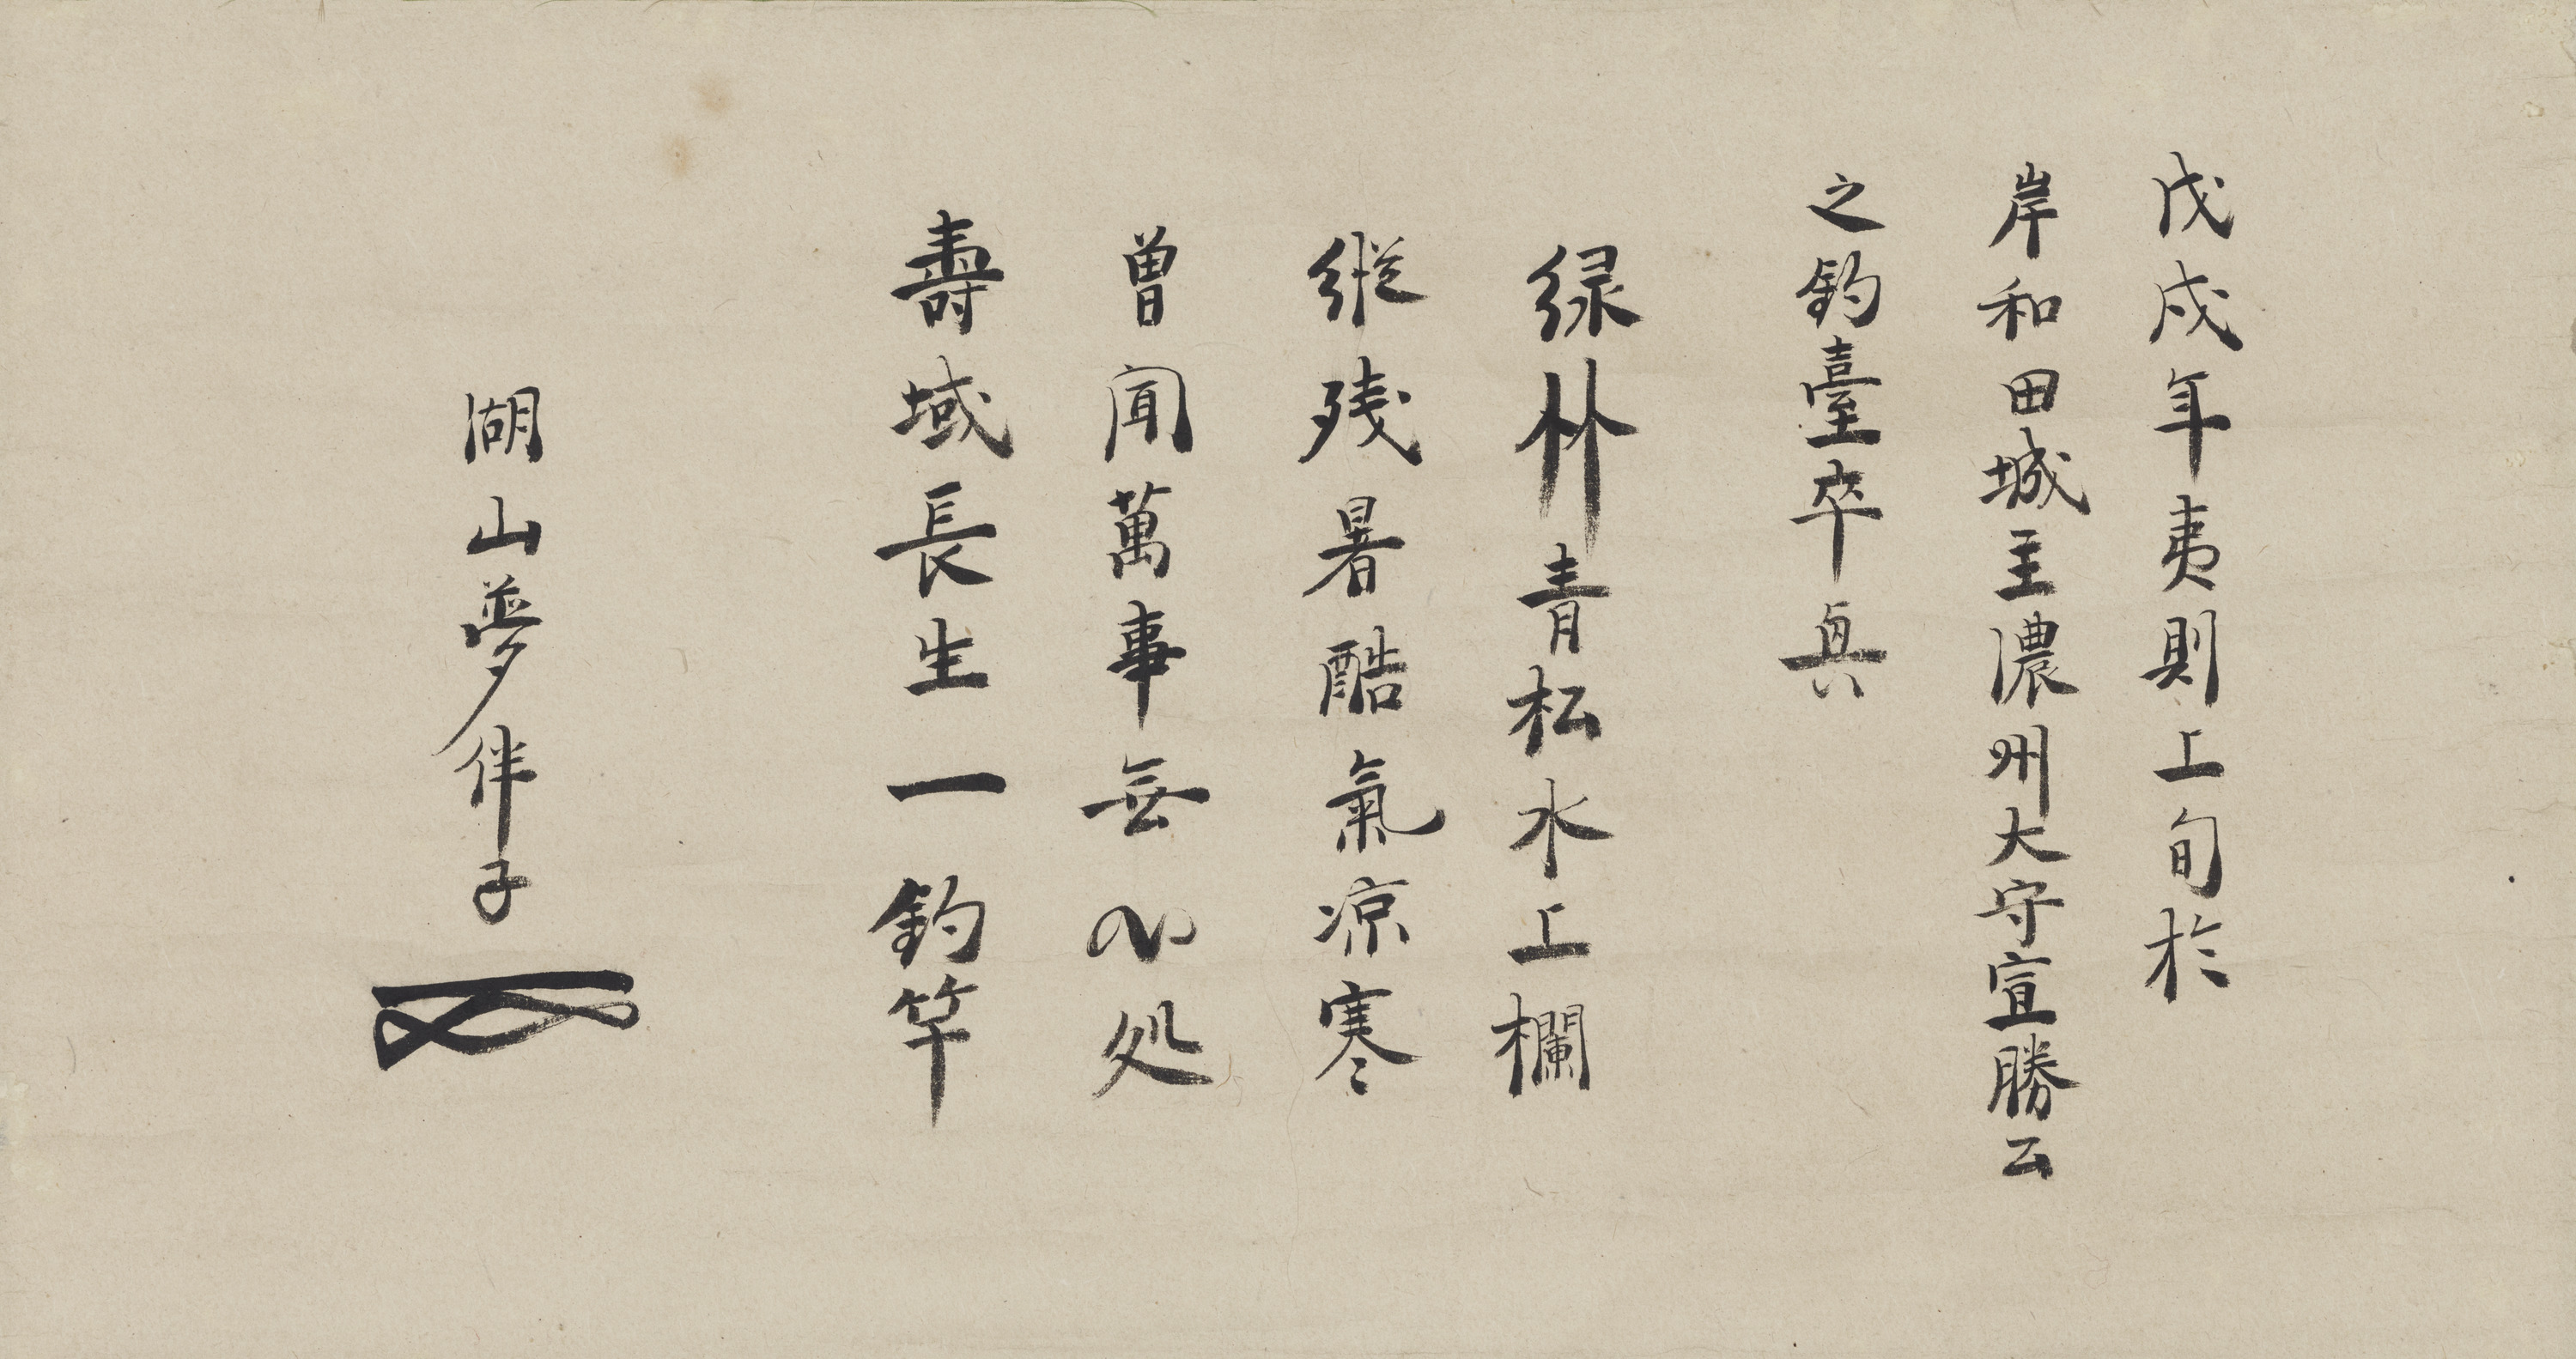 戊戌年夷則上旬於
岸和田城主濃州大守宣勝公
之釣臺卒興
緑竹青松水上欄
縦残暑酷氣凉寒
曽聞萬事無心処
壽域長生一釣竿
湖山夢伴子